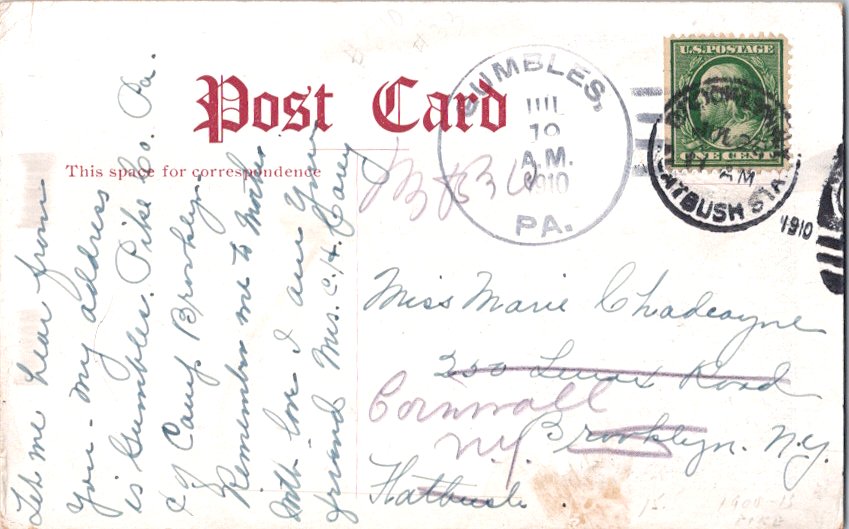 Post Card
This space for correspondence
GUMBLES,
JUL
19
A.M.
1910
PA.
U.S. POSTAGE
ONE CENT
AM
FLATBUSH STA.
1910
Let me hear from
you - my address
is Gumbles. Pike Co. Pa.
c/o Camp Brooklyn.
Remember me to Mother
with love I am Your
friend Mrs. C. H. Carey
Miss Marie Chadeayne
350 Lenox Road
Brooklyn. N.Y.
Flatbush.
Cornwall
N.Y.
1908-13
PIKE